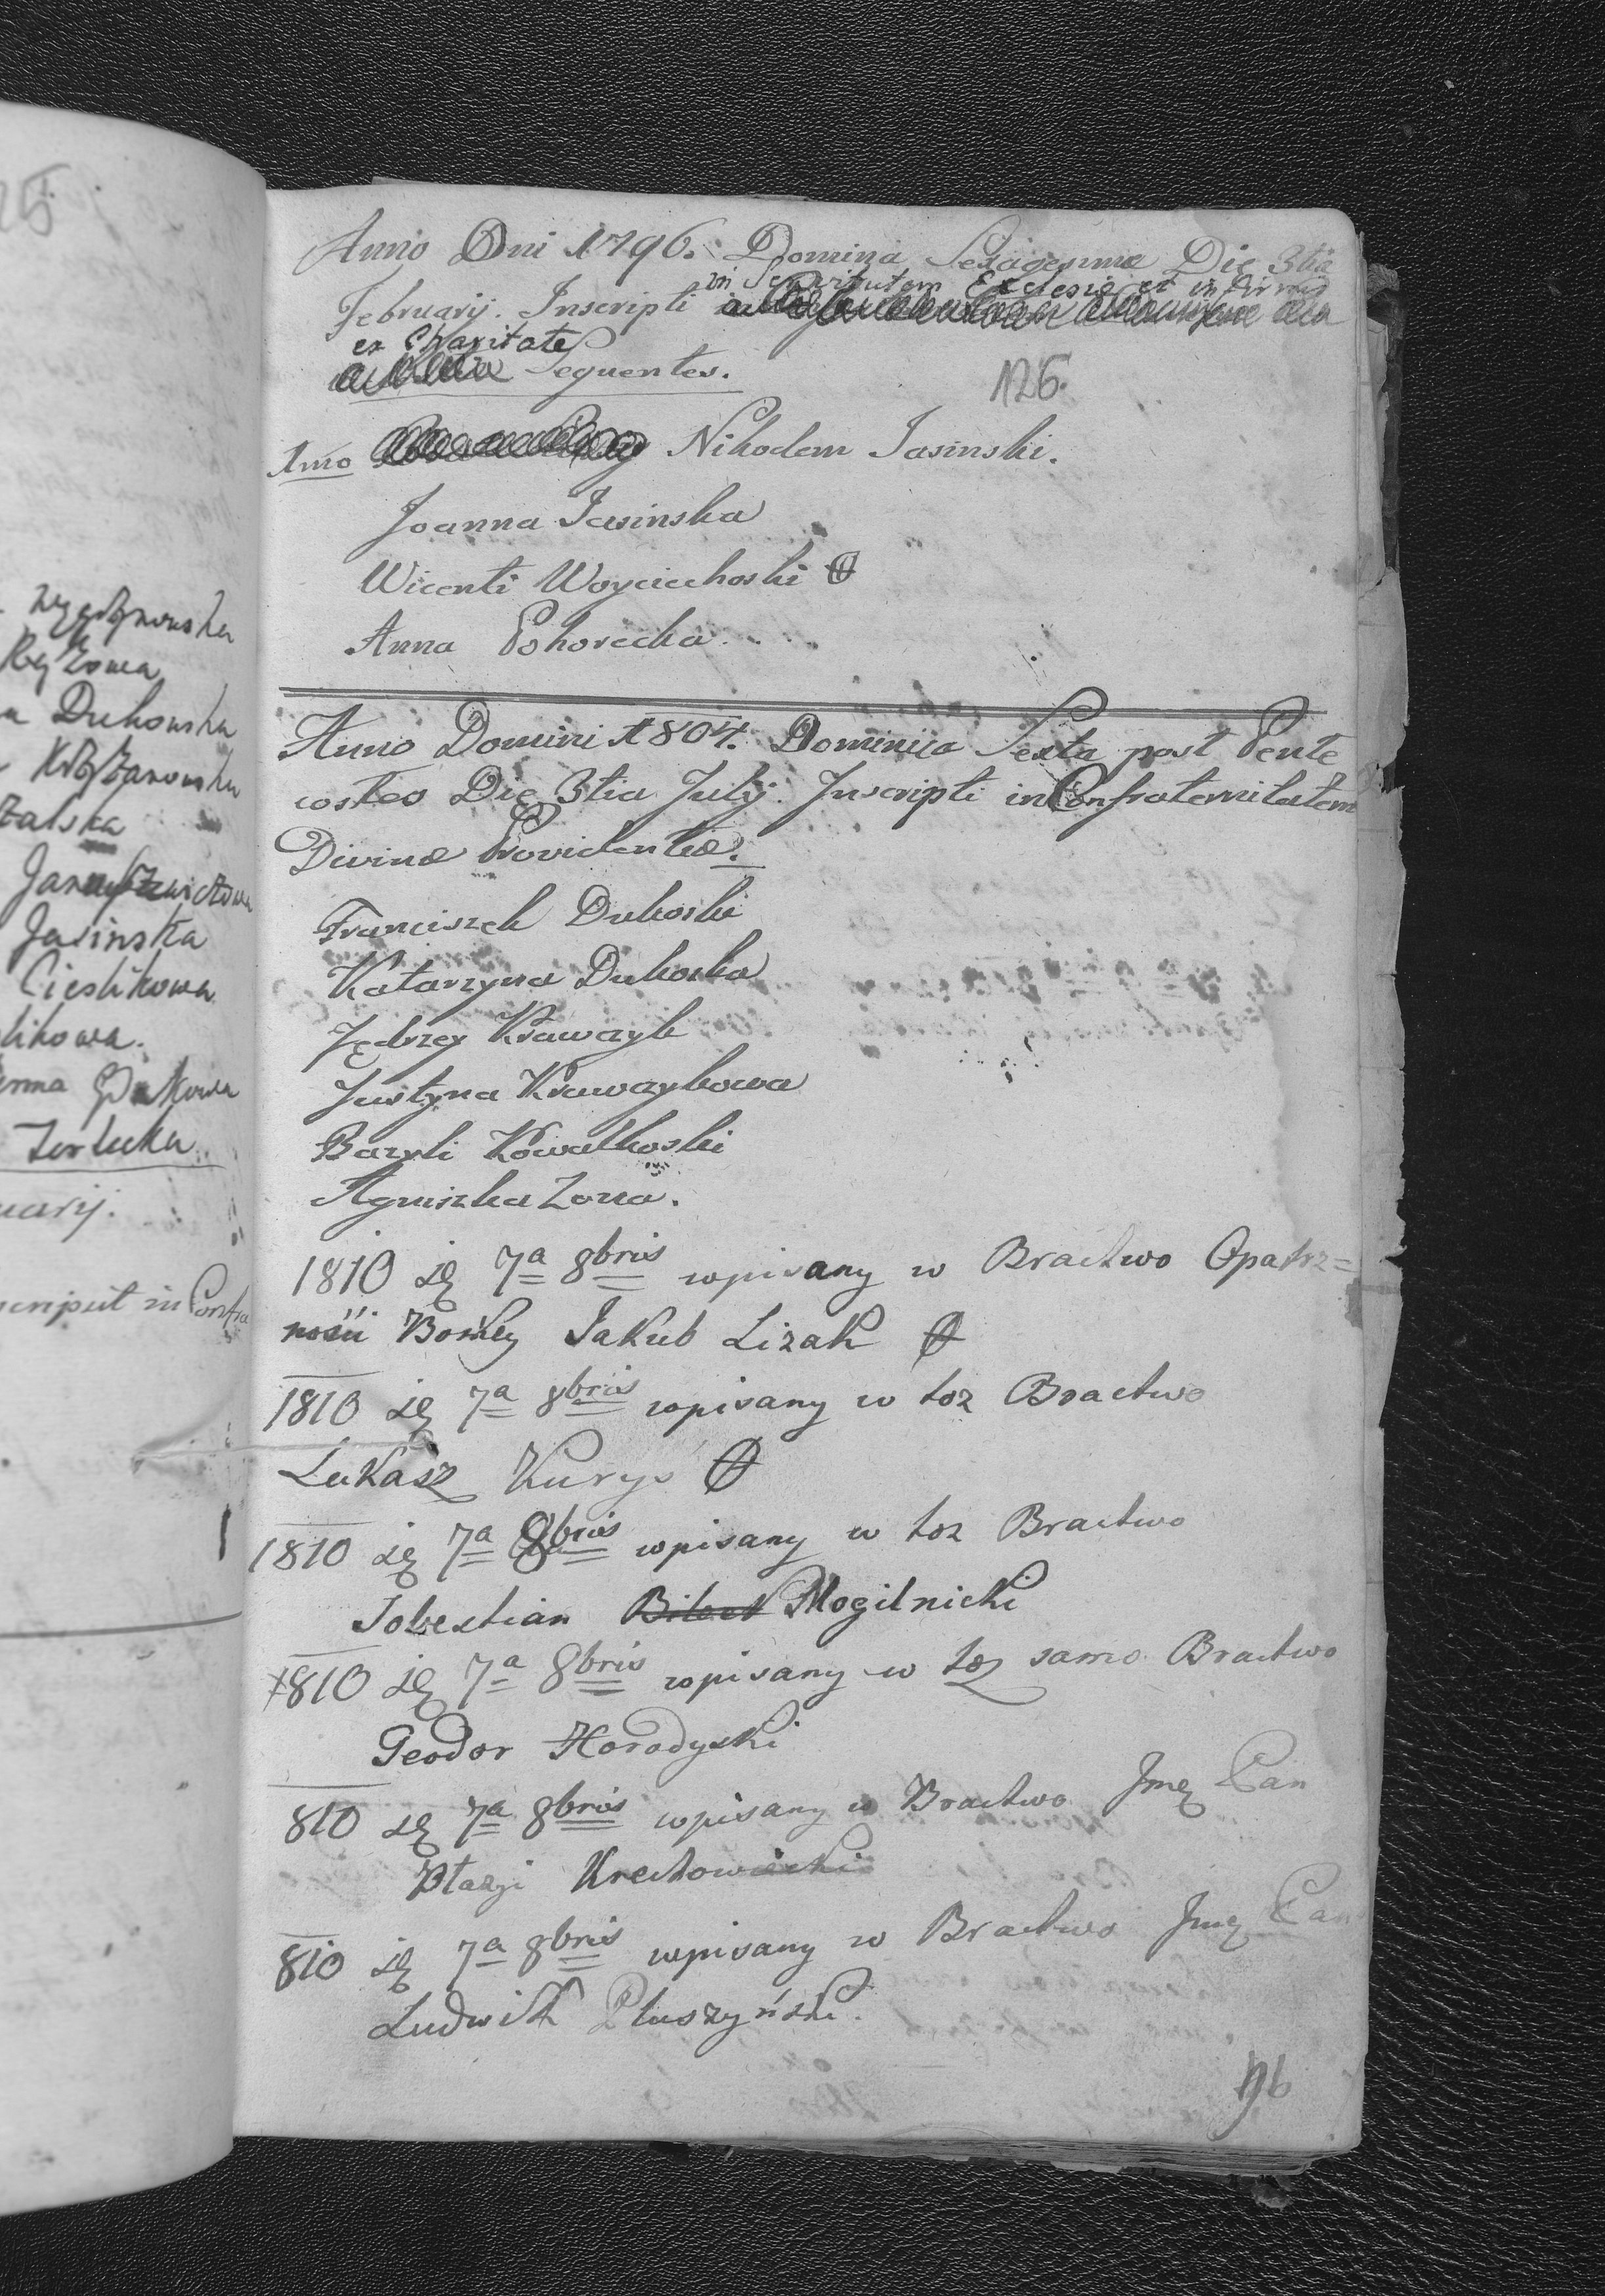 Anno Dni 1796. Domina Sexagesima Die 3tia
in Servitutem Eclesie et infirmis
February. Inscripti
ex Charitate
Sequentes.
126.
Imo Nikodem Jasinski.
Joanna Jasinska
Wicenti Woyciechoski
Anna Pohorecka
Anno Domini 1804. Dominica Sexta post Pente
costes Die 3tia July. Inscripti in Confraternitatem
Divinæ Providentiæ.
Franciszek Dukoski
Katarzyna Dukoska
Jędrzey Krawczyk
Justyna Krawczykowa
Bazyli Kowalkoski
Agniszka Zona.
1810 ię 7a 8bris wpisany w Bractwo Opatrz=
nosii Boskiey Jakub Lizak
1810 ię 7a 8bris wpisany w toz Bractwo
Lukasz Kuryś
1810 ię 7a 8bris wpisany w toz Bractwo
Sobestian Mogilnicki
1810 ię 7a 8bris wpisany w toz samo Bractwo
Teodor Horodyski
810 ię 7a 8bris wpisany w Bractwo Jmę Pan
Błazji Krechowiecki
810 ię 7a 8bris wpisany w Bractwo Jmę Pan
Ludwik Pluszyński.
96
Dukowska
Jasinska
Cieslikowa
likowa.
uarij.